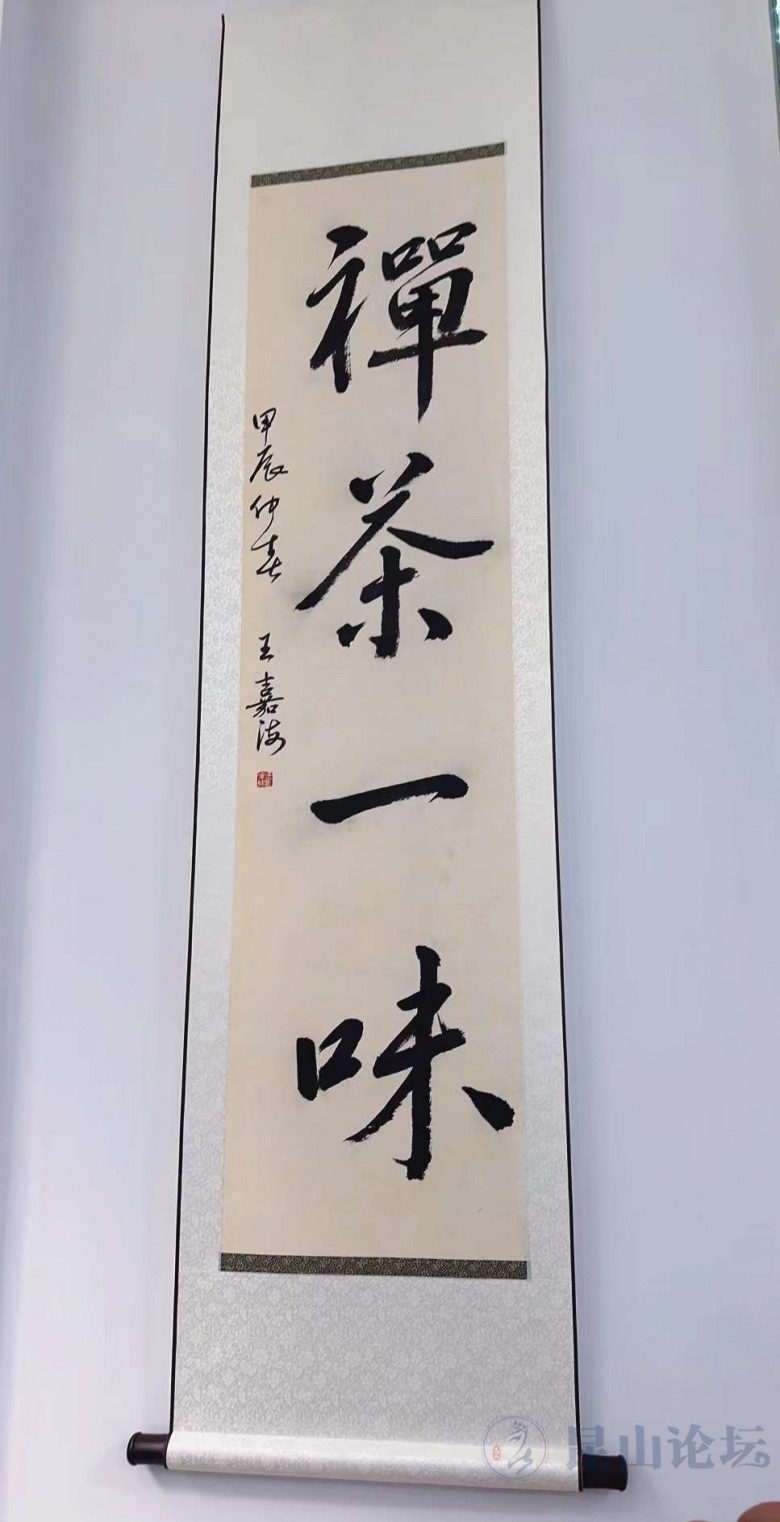 禪茶一味
甲辰仲春 王嘉海
昆山论坛